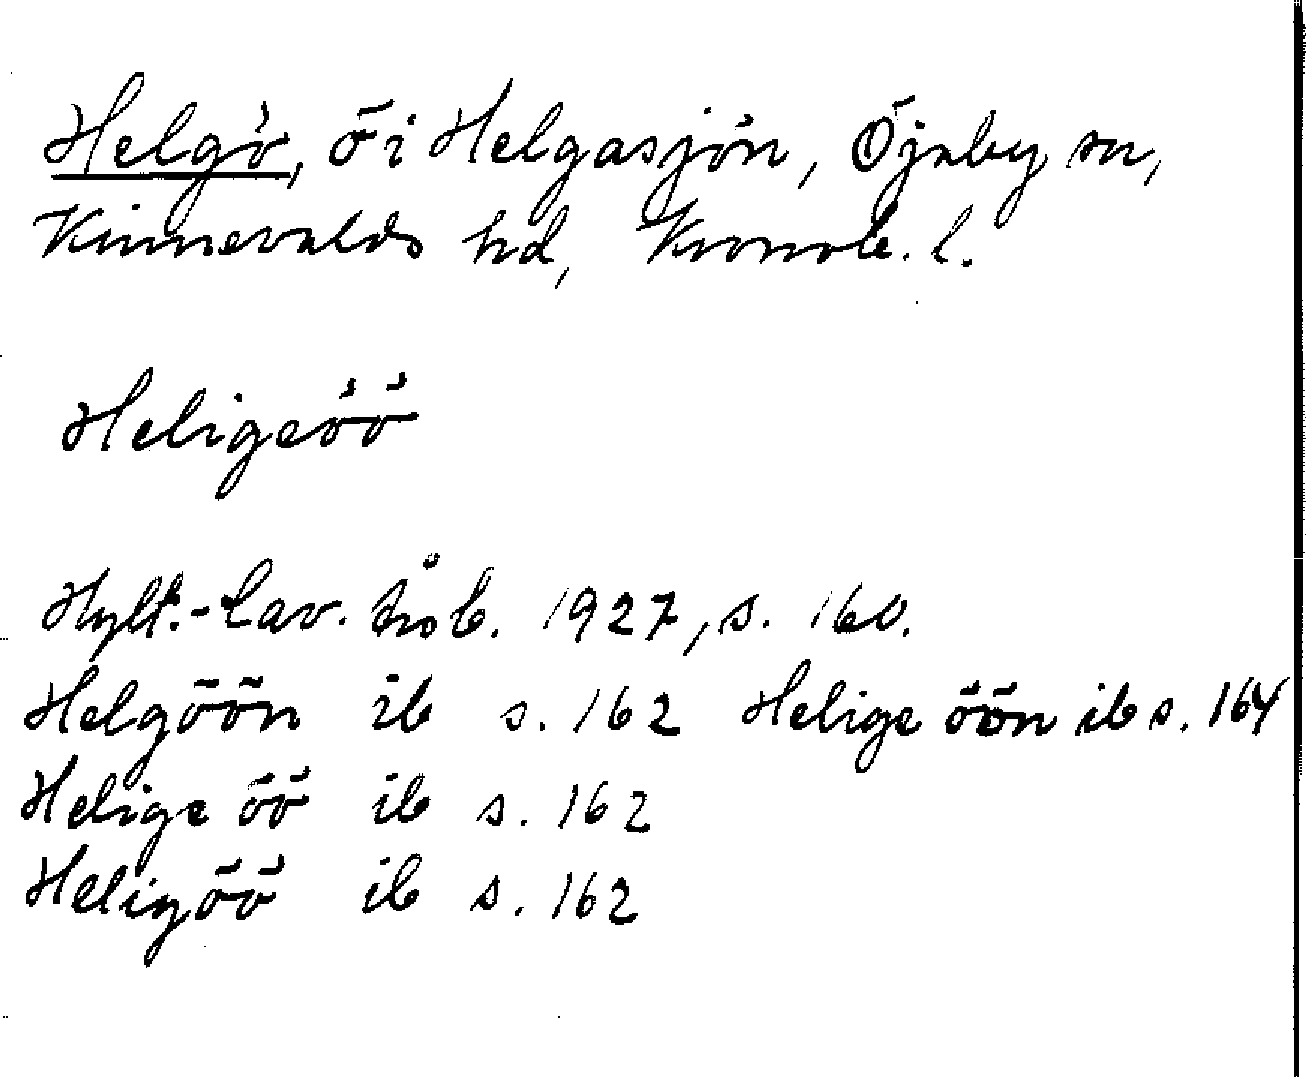 Helgö, ö i Helgasjön, Öjaby sn,
Kinnevalds hd, Kronob. l.
Heligeöö
Hylt.-Cav. håb. 1927, s. 160.
Helgöön ib s. 162 Helige öön ib s. 164
Helige öö ib s. 162
Heligöö ib s. 162